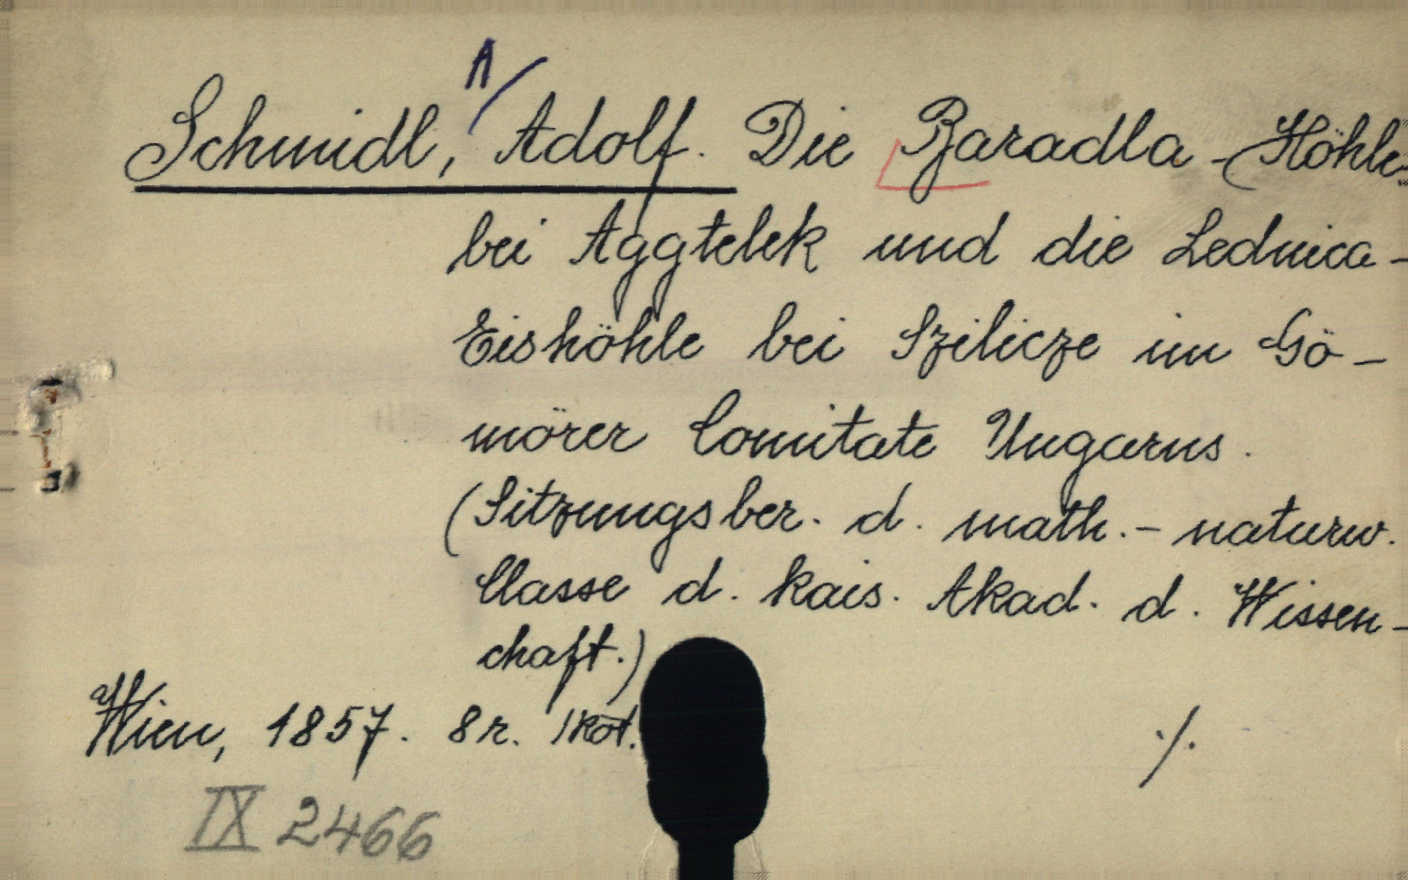 A/
Schmidl, Adolf. Die Baradla-Höhle
bei Aggtelek und die Lednica-
Eishöhle bei Szilicze im Gö-
mörer Comitate Ungarns.
(Sitzungsber. d. math.- naturw.
Classe d. kais. Akad. d. Wissen-
chaft.)
Wien, 1857. 8r. 1köt.
./.
IX 2466